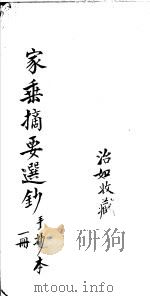 家乘摘要選鈔手抄本
一冊
治如收藏
www.mtoou.info